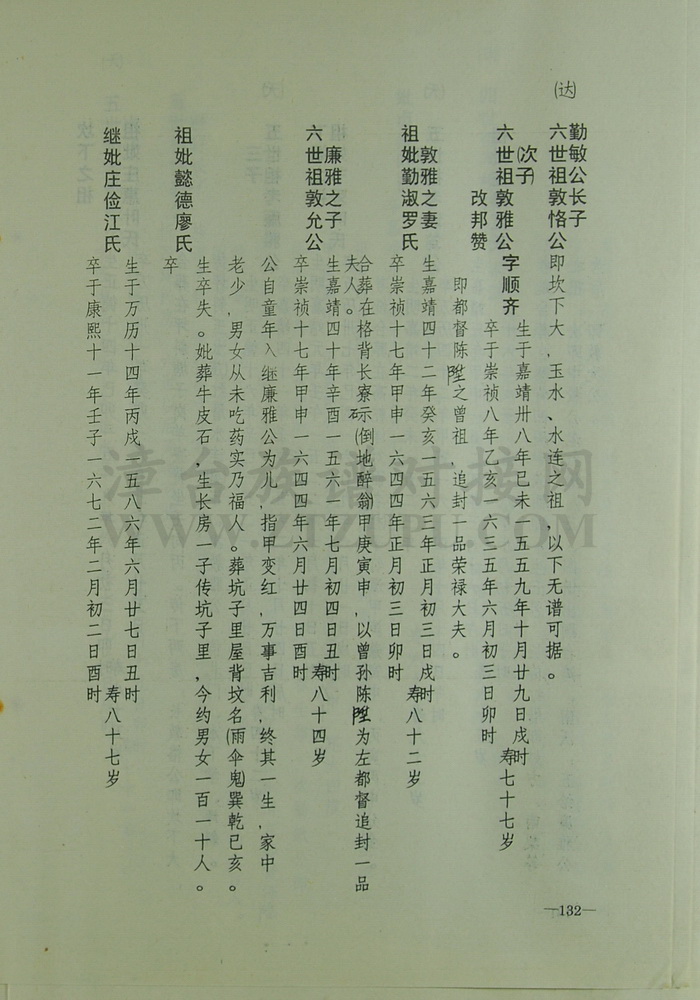 (达)
勤敏公长子
六世祖敦恪公 即坎下大,玉水、水连之祖,以下无谱可据。
(次子)
六世祖敦雅公 字顺齐 生于嘉靖卅八年已未一五五九年十月廿九日戍时
卒于崇祯八年乙亥一六三五年六月初三日卯时 寿七十七岁
改邦赞
即都督陈陞之曾祖,追封一品荣禄大夫。
敦雅之妻
祖妣勤淑罗氏 生嘉靖四十二年癸亥一五六三年正月初三日戍时
卒崇祯十七年甲申一六四四年正月初三日卯时 寿八十二岁
合葬在格背长寮碲(倒地醉翁)甲庚寅申,以曾孙陈陞为左都督追封一品
夫人。
廉雅之子
六世祖敦允公 生嘉靖四十年辛酉一五六一年七月初四日丑时
卒崇祯十七年甲申一六四四年六月廿四日酉时 寿八十四岁
公自童年入继廉雅公为儿,指甲变红,万事吉利,终其一生,家中
老少,男女从未吃药实乃福人。葬坑子里屋背坟名(雨伞鬼)巽乾已亥。
祖妣懿德廖氏 生卒失。妣葬牛皮石,生长房一子传坑子里,今约男女一百一十人。
卒
继妣庄俭江氏 生于万历十四年丙戍一五八六年六月廿七日丑时
卒于康熙十一年壬子一六七二年二月初二日酉时 寿八十七岁
—132—
漳台族谱对接网
WWW.ZTZUPU.COM